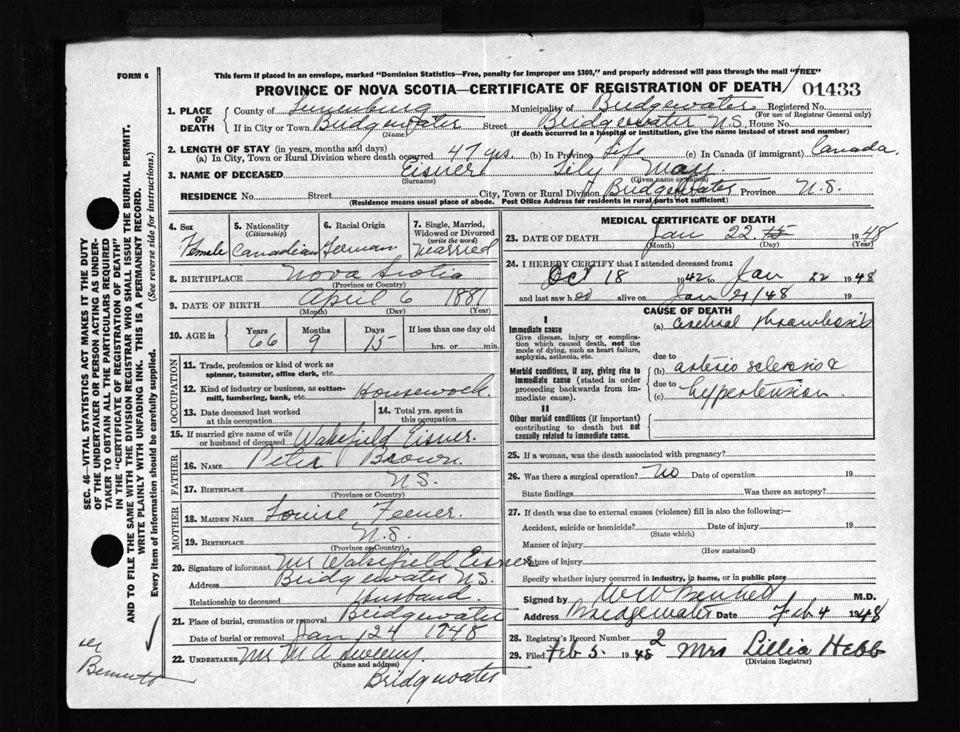 FORM 6
This form if placed in an envelope, marked "Dominion Statistics—Free, penalty for improper use $300," and properly addressed will pass through the mail "FREE"
PROVINCE OF NOVA SCOTIA—CERTIFICATE OF REGISTRATION OF DEATH
01433
1. PLACE OF DEATH
County of Lunenburg Municipality of Bridgewater Registered No.
(For use of Registrar General only)
If in City or Town Bridgewater Street Bridgewater N.S. House No.
(Name) (If death occurred in a hospital or institution, give the name instead of street and number)
2. LENGTH OF STAY (in years, months and days)
(a) In City, Town or Rural Division where death occurred 47 yrs. (b) In Province Life (c) In Canada (if immigrant) Canada.
3. NAME OF DECEASED Eisner Lily May
(Surname) (Given name or names)
RESIDENCE No. Street City, Town or Rural Division Bridgewater Province N.S.
(Residence means usual place of abode. Post Office Address for residents in rural parts not sufficient)
4. Sex
Female
5. Nationality
(Citizenship)
Canadian
6. Racial Origin
German
7. Single, Married, Widowed or Divorced
(write the word)
Married
8. BIRTHPLACE Nova Scotia
(Province or Country)
9. DATE OF BIRTH April 6 1881
(Month) (Day) (Year)
10. AGE in Years Months Days If less than one day old
66 9 15 hrs. or min.
OCCUPATION
11. Trade, profession or kind of work as spinner, teamster, office clerk, etc.
12. Kind of industry or business, as cotton-mill, lumbering, bank, etc. Housework.
13. Date deceased last worked at this occupation
14. Total yrs. spent in this occupation
15. If married give name of wife or husband of deceased Wakefield Eisner.
FATHER
16. NAME Peter Brown.
17. BIRTHPLACE N.S.
(Province or Country)
MOTHER
18. MAIDEN NAME Louise Feener.
19. BIRTHPLACE N.S.
(Province or Country)
20. Signature of informant Mr Wakefield Eisner
Address Bridgewater N.S.
Relationship to deceased Husband
21. Place of burial, cremation or removal Bridgewater
Date of burial or removal Jan 24 1948
22. UNDERTAKER Mr M A Sweeny.
(Name and address)
Bridgwater
MEDICAL CERTIFICATE OF DEATH
23. DATE OF DEATH Jan 22 15 1948
(Month) (Day) (Year)
24. I HEREBY CERTIFY that I attended deceased from:
Oct 18 1942 to Jan 22 1948
and last saw h alive on Jan 21/48 19
CAUSE OF DEATH
I
Immediate cause
Give disease, injury or complication which caused death, not the mode of dying, such as heart failure, asphyxia, asthenia, etc.
(a) cerebral thrombosis
due to
Morbid conditions, if any, giving rise to immediate cause (stated in order proceeding backwards from immediate cause).
(b) arterio sclerosis &
due to
(c) hypertension.
II
Other morbid conditions (if important) contributing to death but not causally related to immediate cause.
25. If a woman, was the death associated with pregnancy?
26. Was there a surgical operation? No Date of operation 19
State findings Was there an autopsy?
27. If death was due to external causes (violence) fill in also the following:—
Accident, suicide or homicide? Date of injury 19
(State which)
Manner of injury
(How sustained)
Nature of injury
Specify whether injury occurred in industry, in home, or in public place
Signed by W W Bennett M.D.
Address Bridgewater Date Feb 4 1948
28. Registrar's Record Number 2
29. Filed Feb 5. 1948 Mrs Lillia Hebb
(Division Registrar)
SEC. 46—VITAL STATISTICS ACT MAKES IT THE DUTY
OF THE UNDERTAKER OR PERSON ACTING AS UNDER-
TAKER TO OBTAIN ALL THE PARTICULARS REQUIRED
IN THE "CERTIFICATE OF REGISTRATION OF DEATH"
AND TO FILE THE SAME WITH THE DIVISION REGISTRAR WHO SHALL ISSUE THE BURIAL PERMIT.
WRITE PLAINLY WITH UNFADING INK. THIS IS A PERMANENT RECORD.
Every item of information should be carefully supplied. (See reverse side for instructions.)
Bennett